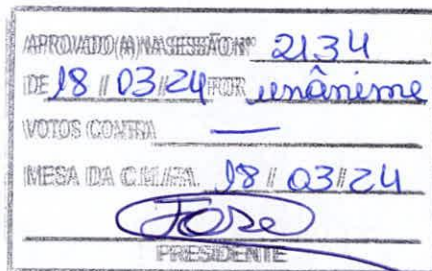 APROVADO(A) NA SESSÃO Nº 2134
DE 18 / 03 / 24 POR unânime
VOTOS CONTRA —
MESA DA C.M./FA. 18 / 03 / 24
Jose
PRESIDENTE